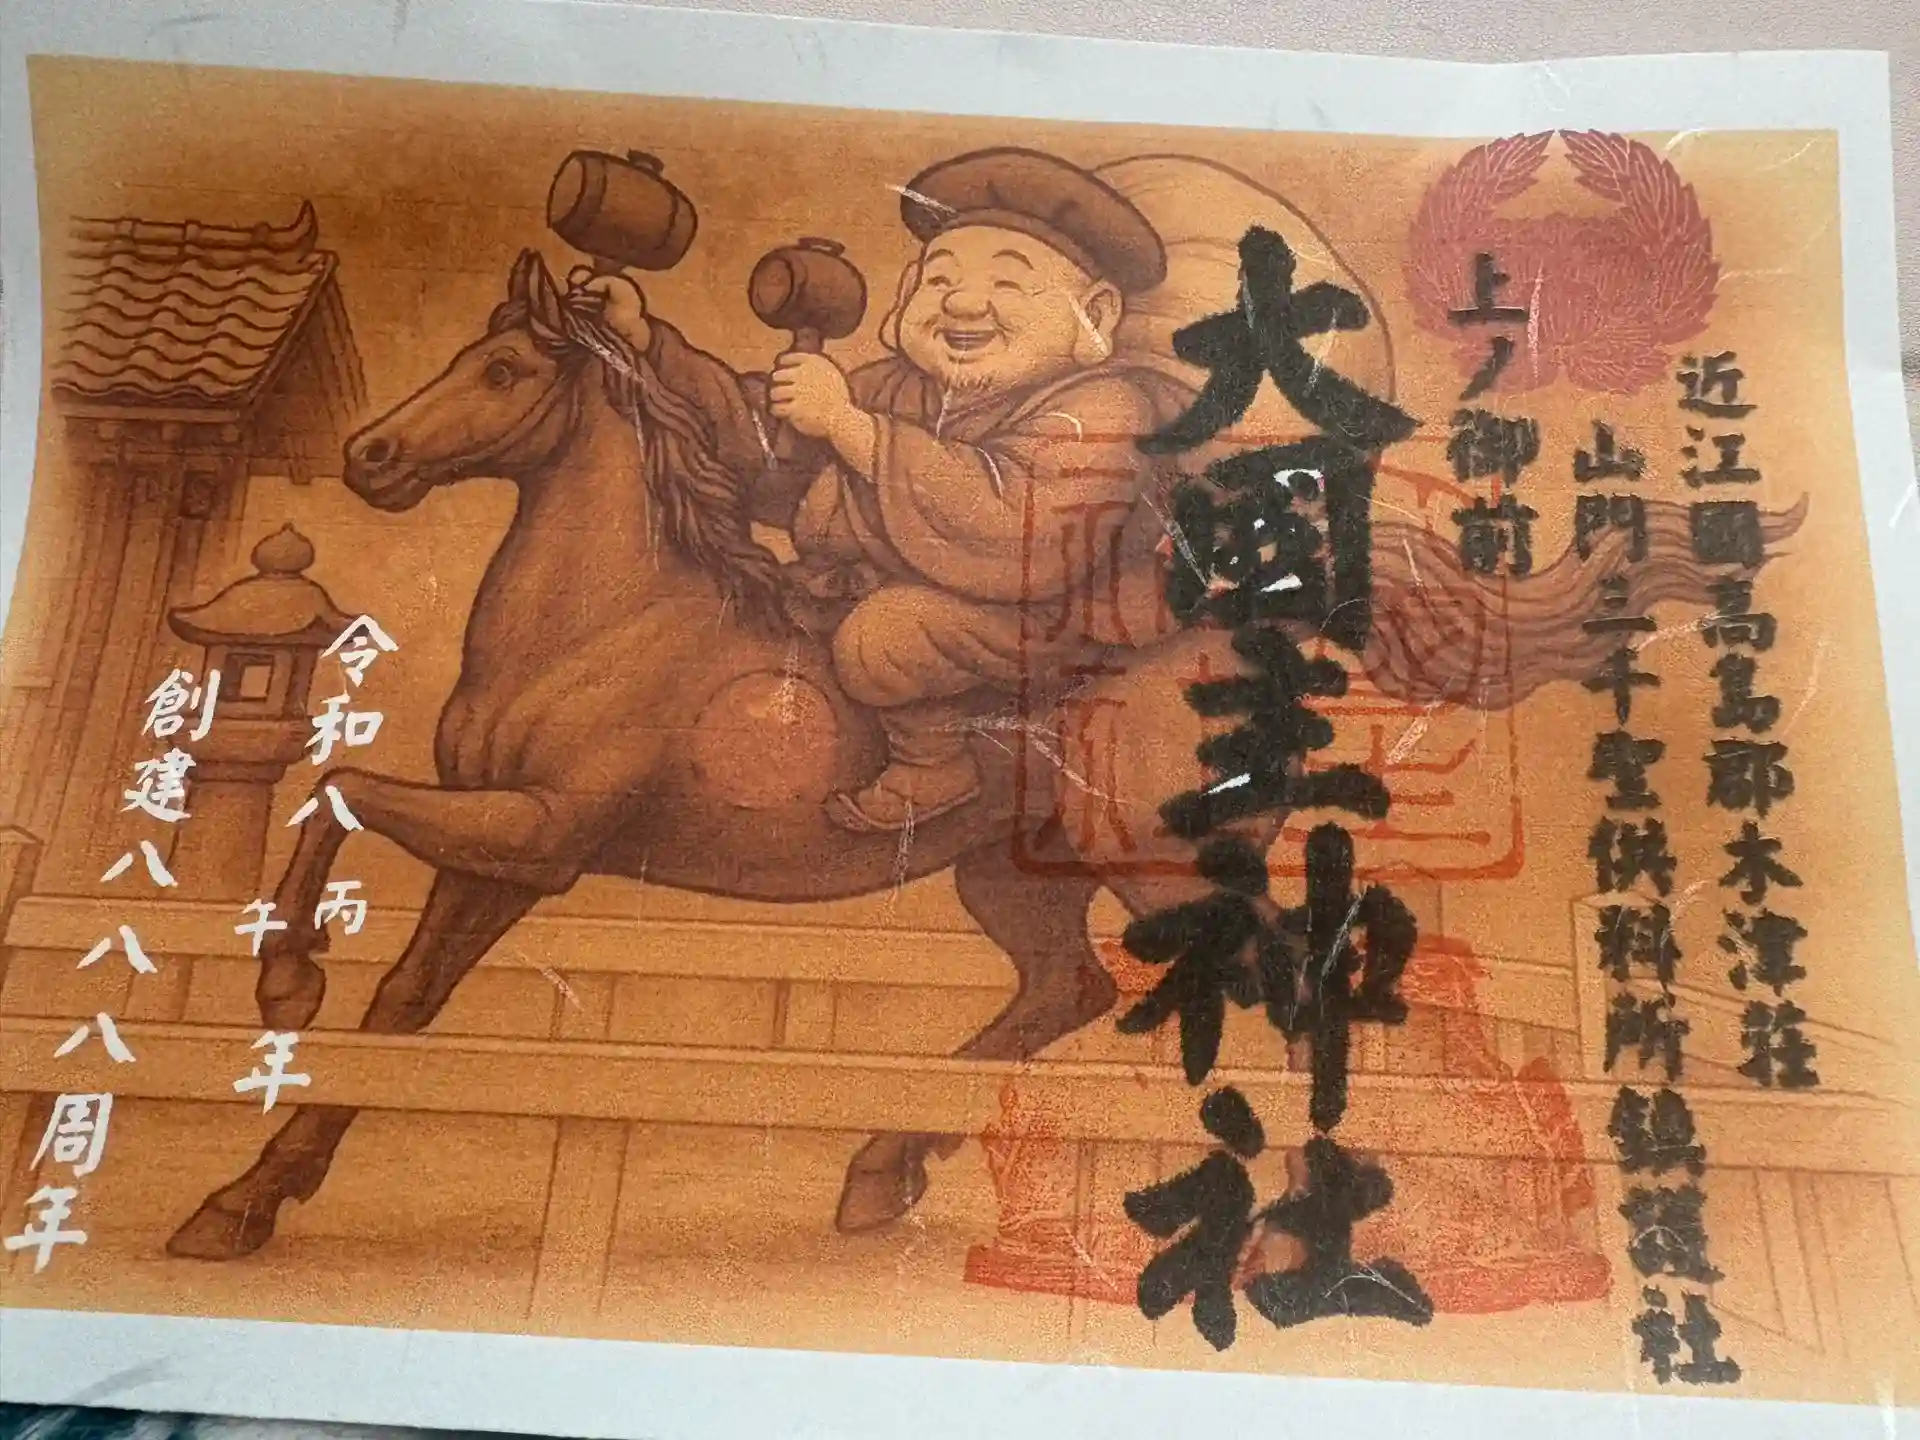 近江國高島郡木津荘
山門三千聖供料所鎮護社
上ノ御前
大国主神社
令和八丙午年
創建八八八周年